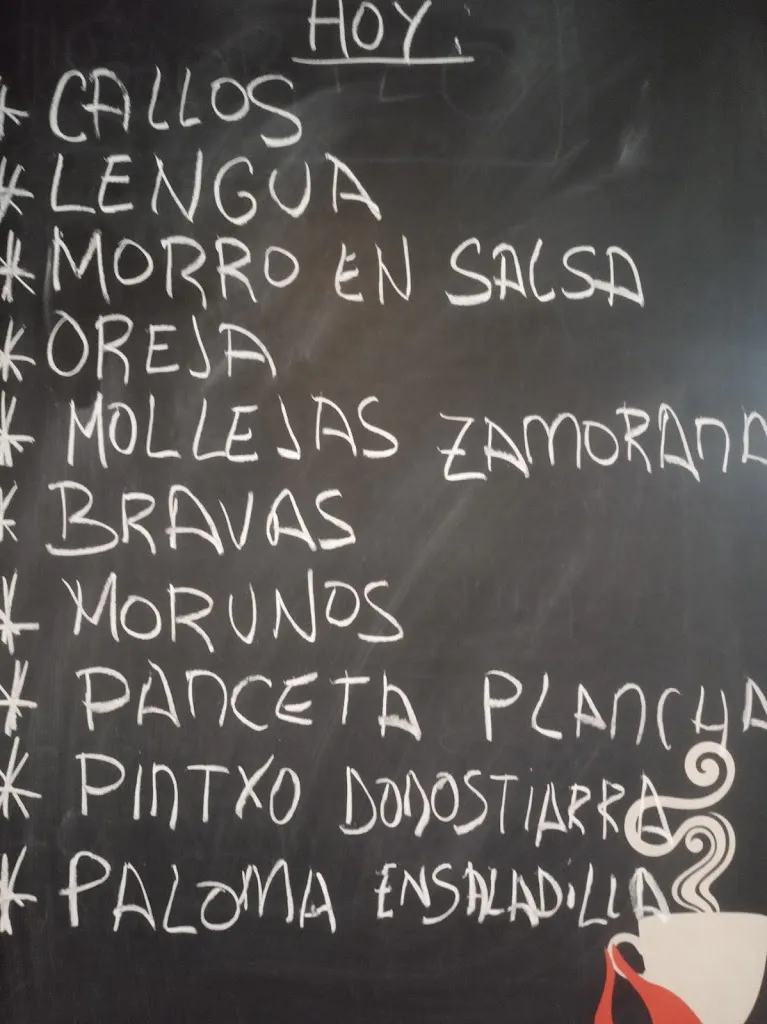 HOY:
* CALLOS
* LENGUA
* MORRO EN SALSA
* OREJA
* MOLLEJAS ZAMORANA
* BRAVAS
* MORUNOS
* PANCETA PLANCHA
* PINTXO DONOSTIARRA
* PALOMA ENSALADILLA